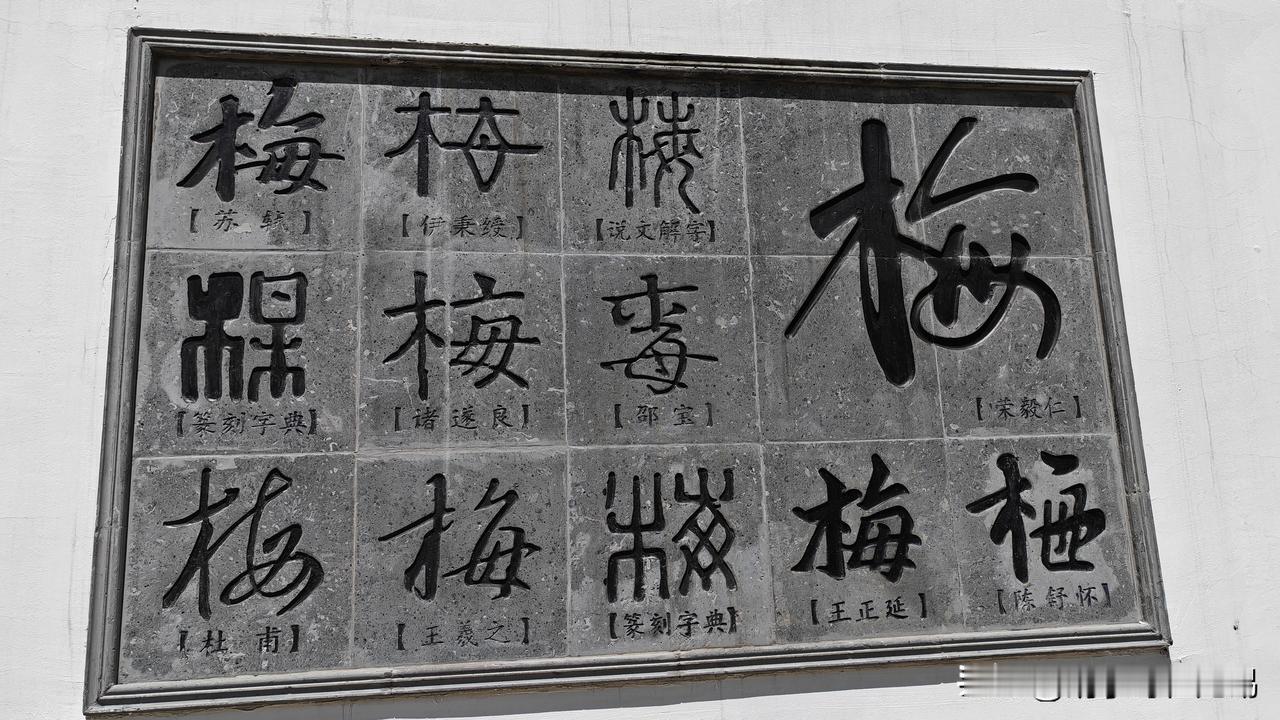 梅 梅 梅 梅
【苏轼】 【伊秉绶】 【说文解字】
槑 梅 𣒫
【篆刻字典】 【诸遂良】 【邵宝】 【荣毅仁】
梅 梅 梅 梅 梅
【杜甫】 【王羲之】 【篆刻字典】 【王正延】 【陈舒怀】